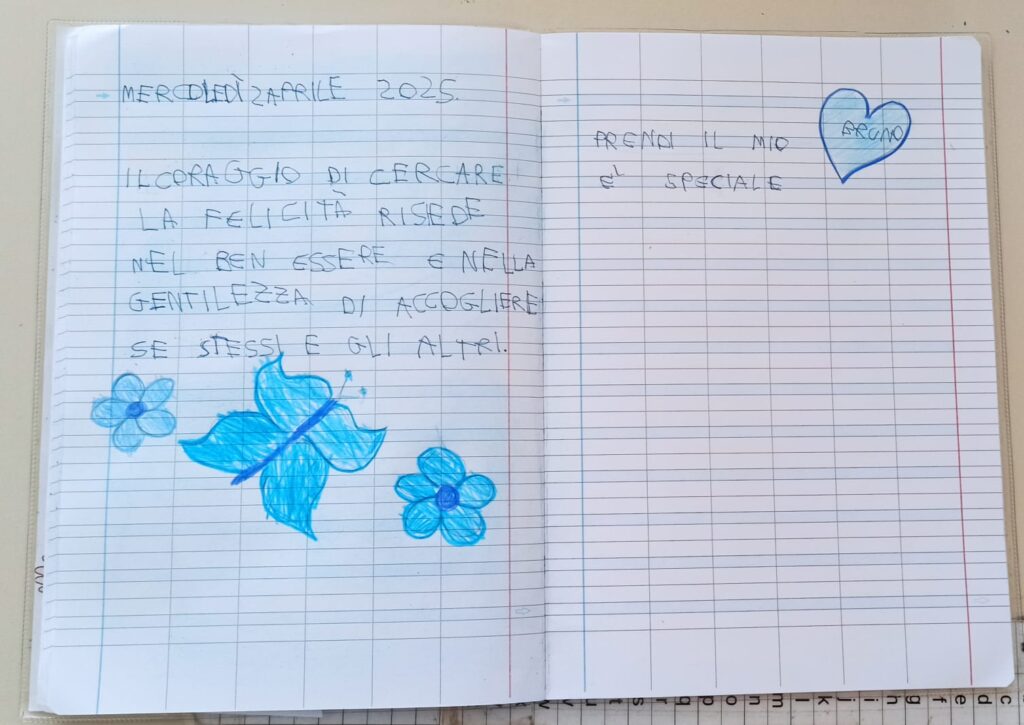 MERCOLEDÌ 2 APRILE 2025.
IL CORAGGIO DI CERCARE
LA FELICITÀ RISEDE
NEL BEN ESSERE E NELLA
GENTILEZZA DI ACCOGLIERE
SE STESSI E GLI ALTRI.
PRENDI IL MIO
BRUNO
E' SPECIALE
c d e f g h i j k l m n o p q r s t u v